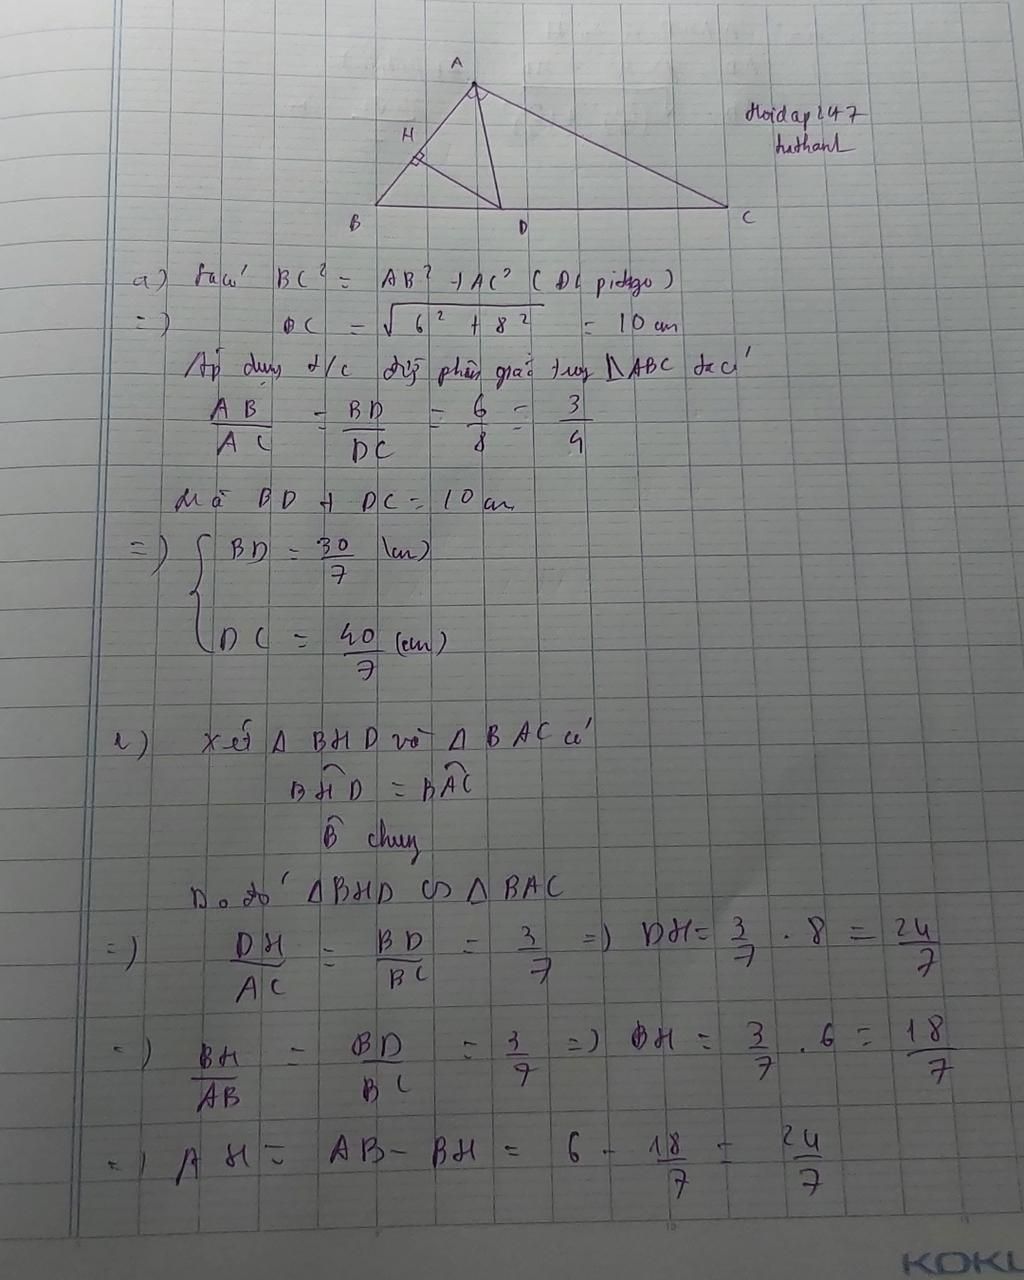 A
Hoidap247
H
B
D
C
a) Ta có BC² = AB² + AC² (ĐL pitago)
=> BC = √(6² + 8²) = 10 cm
Áp dụng t/c đg phân giác trog ΔABC ta có
AB/AC = BD/DC = 6/8 = 3/4
Mà BD + DC = 10 cm
=> { BD = 30/7 (cm)
DC = 40/7 (cm)
Xét Δ BHD và Δ BAC có
BĤD = BÂC
B̂ chung
Do đó ΔBHD ∽ Δ BAC
=> DH/AC = BD/BC = 3/7 => DH = 3/7 . 8 = 24/7
=> BH/AB = BD/BC = 3/7 => BH = 3/7 . 6 = 18/7
=> AH = AB - BH = 6 - 18/7 = 24/7
KOKU